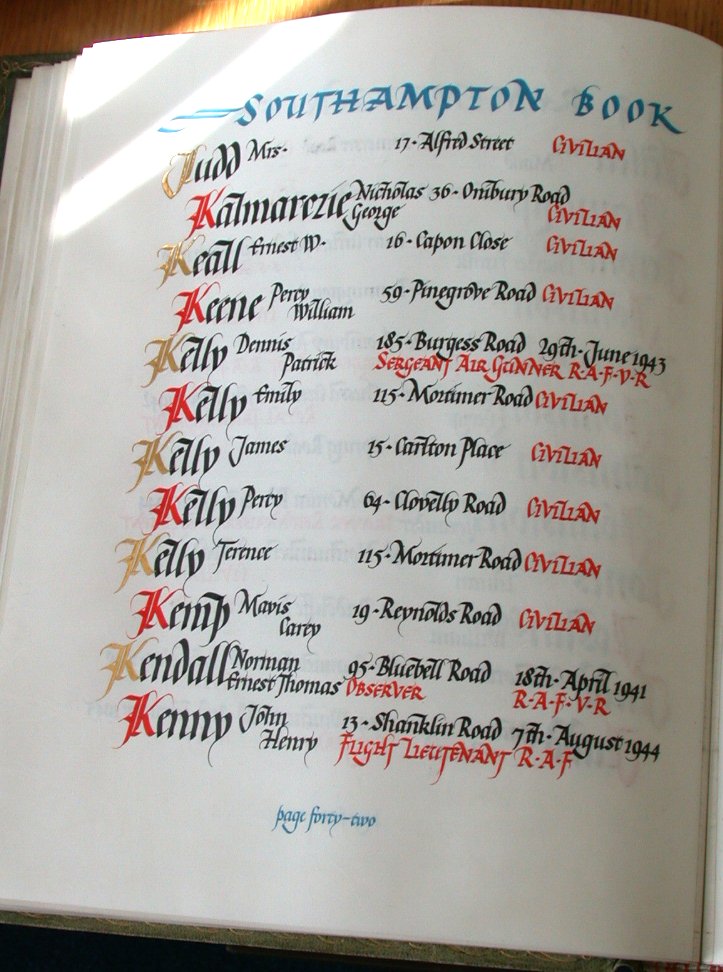 SOUTHAMPTON BOOK
Judd Mrs· 17·Alfred Street CIVILIAN
Kalmarerie Nicholas George 36·Ombury Road CIVILIAN
Keall Ernest W· 16·Capon Close CIVILIAN
Keene Percy William 59·Pinegrove Road CIVILIAN
Kelly Dennis Patrick 185·Burgess Road 29th·June 1943
SERGEANT AIR GUNNER R·A·F·V·R
Kelly Emily 115·Mortimer Road CIVILIAN
Kelly James 15·Carlton Place CIVILIAN
Kelly Percy 64·Clovelly Road CIVILIAN
Kelly Terence 115·Mortimer Road CIVILIAN
Kemp Mavis Carey 19·Reynolds Road CIVILIAN
Kendall Norman Ernest Thomas 95·Bluebell Road 18th·April 1941
OBSERVER R·A·F·V·R
Kenny John Henry 13·Shanklin Road 7th·August 1944
FLIGHT LIEUTENANT R·A·F
page forty-two